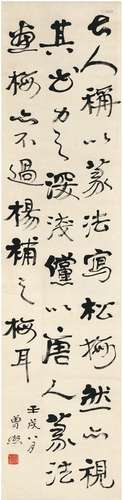 古人稱以篆法寫松梅然亦視
其力之深淺僅以唐人篆法
畫梅亦不過楊補之梅耳
壬戌八月
曾熙